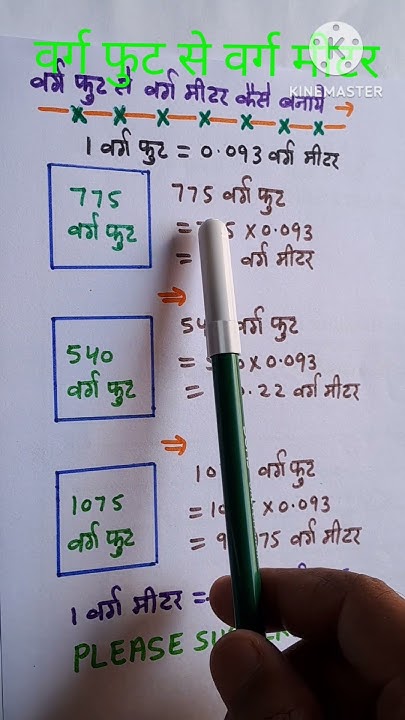 वर्ग फुट से वर्ग मीटर
KINEMASTER
वर्ग फुट से वर्ग मीटर कैसे बनाये
1 वर्ग फुट = 0.093 वर्ग मीटर
775
वर्ग फुट
775 वर्ग फुट
= 5 X 0.093
= वर्ग मीटर
540
वर्ग फुट
54 वर्ग फुट
= X 0.093
= .22 वर्ग मीटर
1075
वर्ग फुट
10 वर्ग फुट
= 10 X 0.093
= 9 75 वर्ग मीटर
1 वर्ग मीटर =
PLEASE